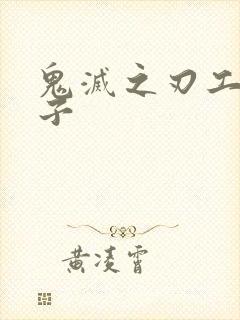 鬼滅之刃工
子
黄凌霄